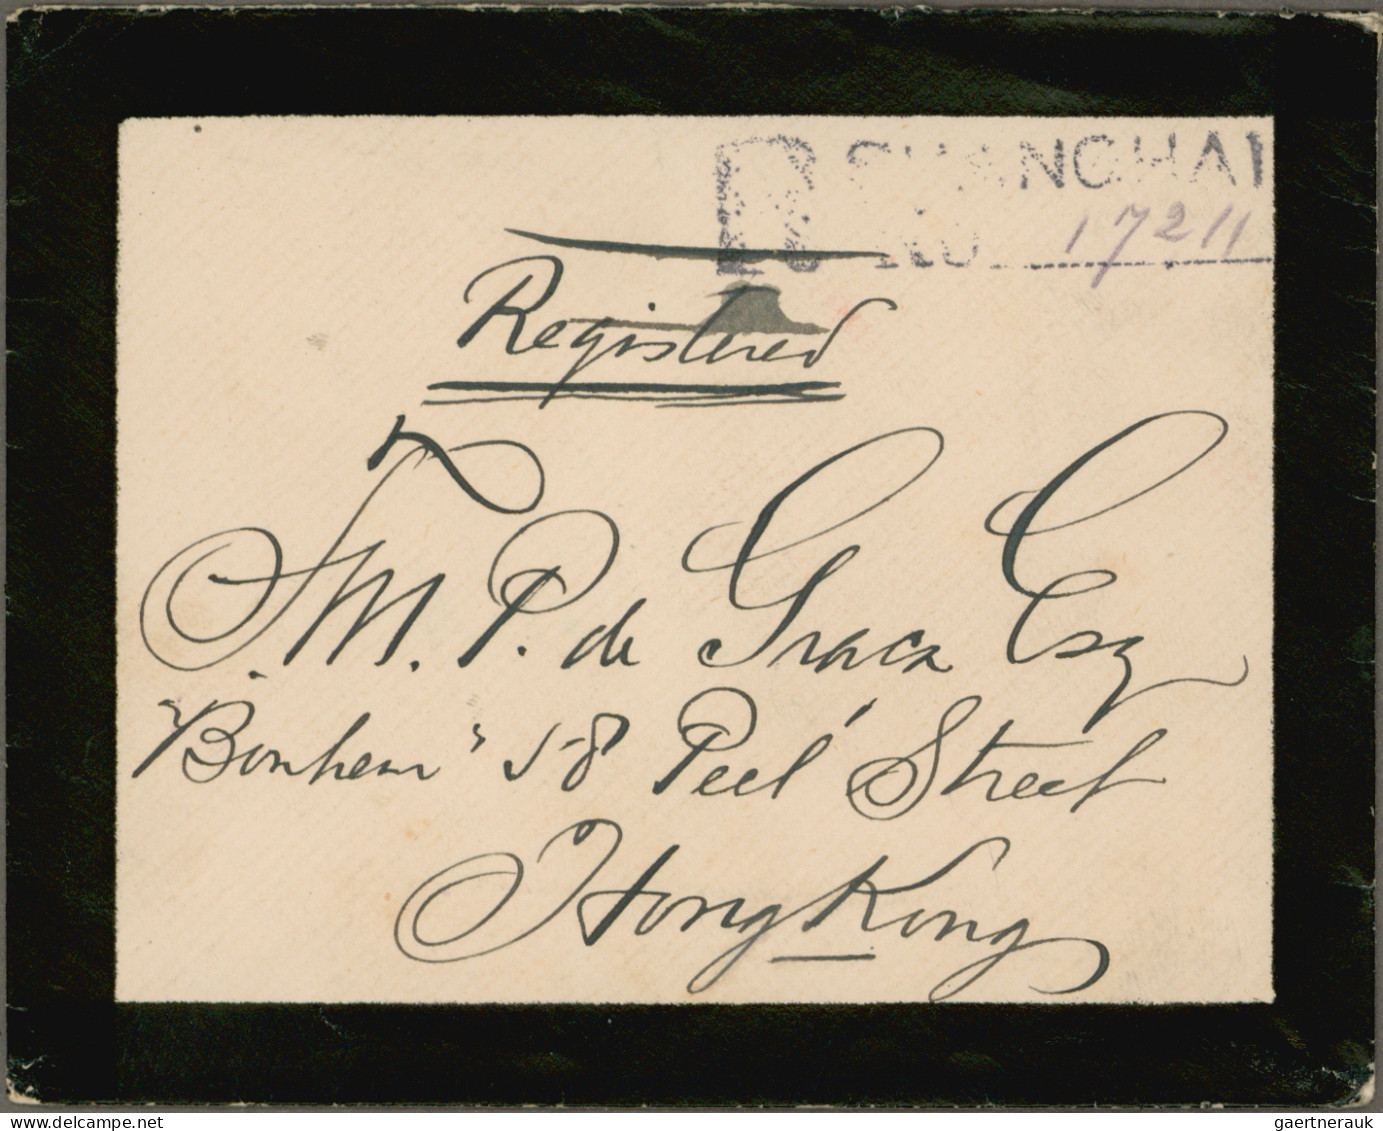 R SHANGHAI
No. 17211
Registered
F. M. P. de Graca Esq
"Bonham" 58 Peel Street
Hong Kong
delcampe.net
gaertnerauk